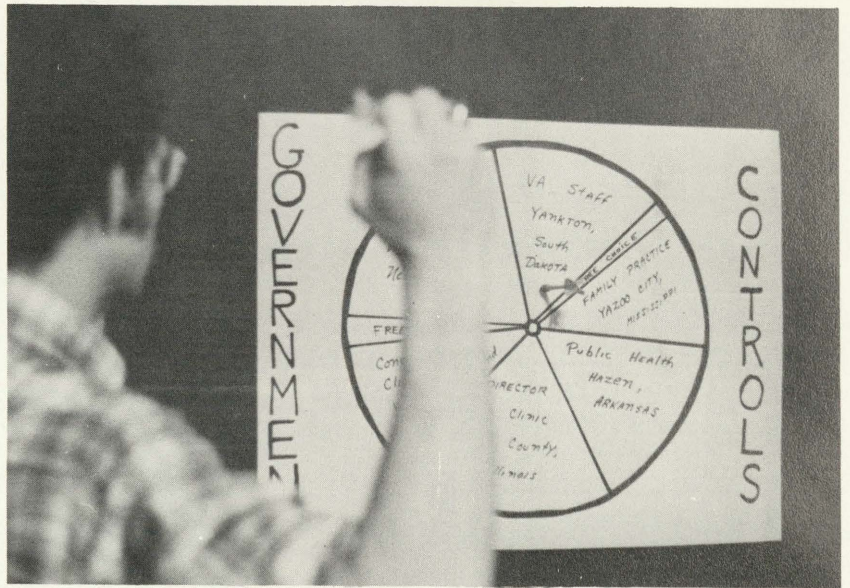 GOVERNMEN
CONTROLS
VA Staff
Yankton,
South
Dakota
FREE CHOICE
FAMILY PRACTICE
YAZOO CITY,
MISSISSIPPI
Public Health
Hazen,
ARKANSAS
DIRECTOR
Clinic
County,
Illinois
FREE
Con
Cli